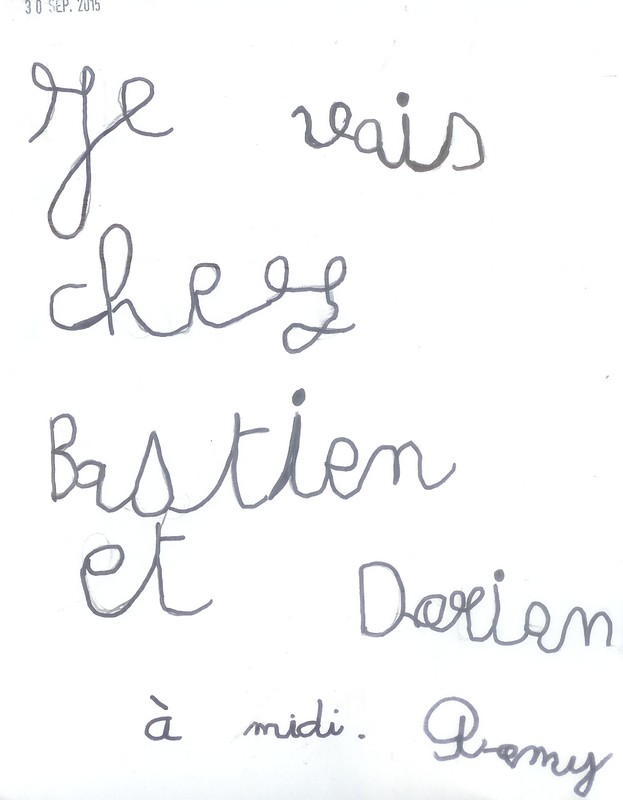 30 SEP. 2015
Je vais
chez
Bastien
et Dorian
à midi. Remy